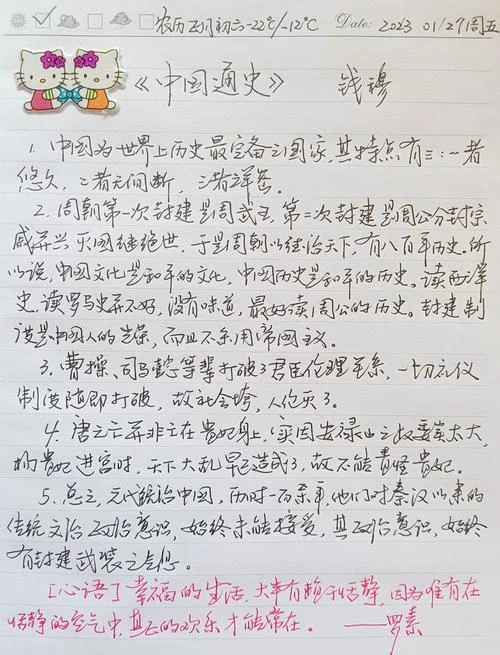 农历正月初六 -22℃/-12℃ Date: 2023 01/27周五
《中国通史》 钱穆
1. 中国为世界上历史最完备之国家,其特点有三:一者
悠久,二者无间断,三者详密。
2. 周朝第一次封建是周武王,第二次封建是周公分封宗
戚弄兴灭国继绝世,于是周朝以统治天下,有八百年历史。所
以说,中国文化是和平的文化,中国历史是和平的历史。读西洋
史,读罗马史并不好,没有味道,最好读周公的历史。封建制
度是中国人的光荣,而且不采用帝国主义。
3. 曹操、司马懿等辈打破了君臣伦理关系,一切礼仪
制度随即打破,故社会垮,人伦灭了。
4. 唐之亡并非全在贵妃身上,实因安禄山之权委实太大,
杨贵妃进宫时,天下大乱早已造成了,故不能责怪贵妃。
5. 总之,元代统治中国,历时一百余年,他们对秦汉以来的
传统文治政治意识,始终未能接受,其政治意识,始终
有封建武装之气息。
[心语]幸福的生活,大半有赖于恬静,因为唯有在
恬静的空气中,真正的欢乐才能常在。——罗素